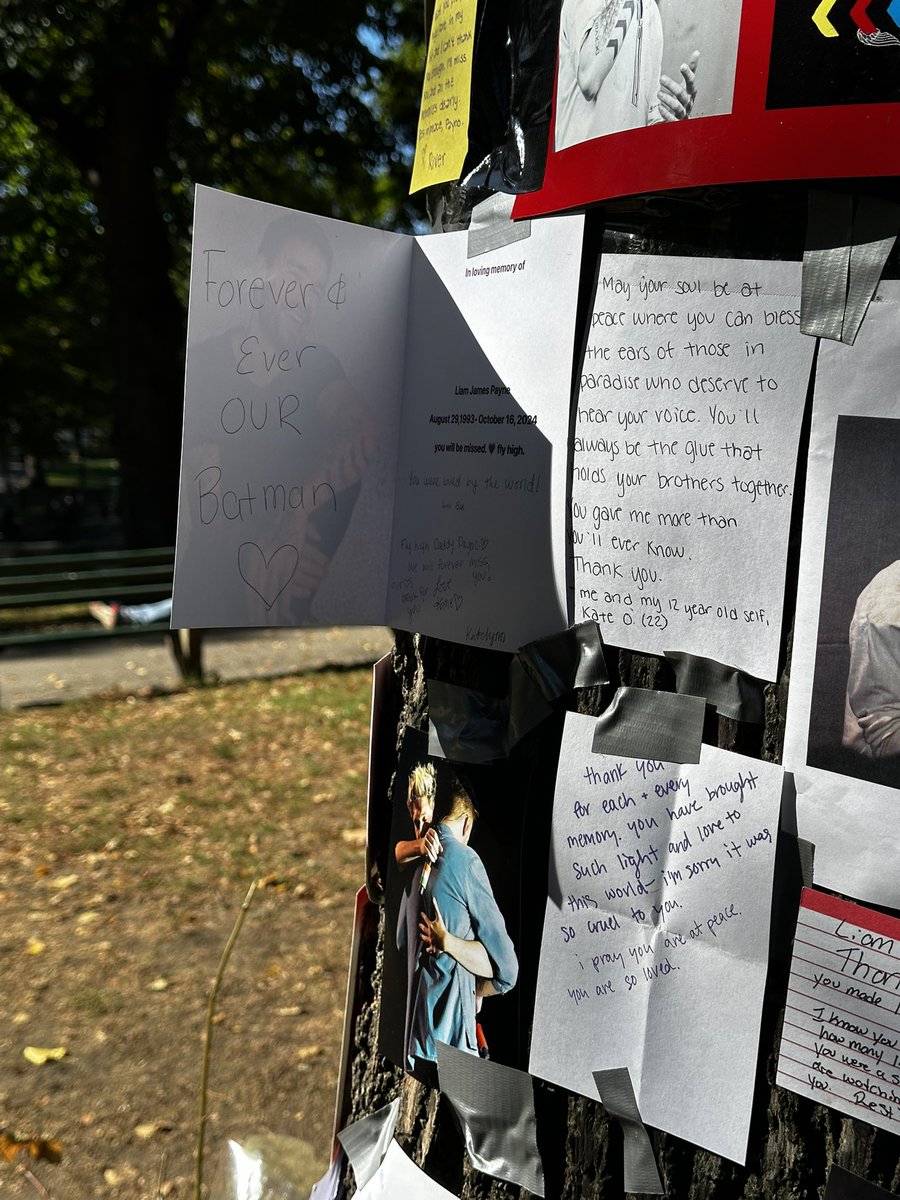 miss
dearly.
Payno.
River
Forever &
Ever
OUR
Batman
In loving memory of
Liam James Payne
August 29,1993- October 16, 2024
you will be missed. 🖤 fly high.
You were loved by the world!
Fly high Daddy Payne ♡
We will forever miss
you!
love
you!
Katelynn
May your soul be at
peace where you can bless
the ears of those in
paradise who deserve to
hear your voice. You'll
always be the glue that
holds your brothers together.
You gave me more than
you'll ever know.
Thank you.
me and my 12 year old self,
Kate O. (22)
thank you
for each + every
memory. you have brought
such light and love to
this world– i'm sorry it was
so cruel to you.
i pray you are at peace.
you are so loved.
Liam
you made
I know you
how many
you were a
are watchin
you. Rest